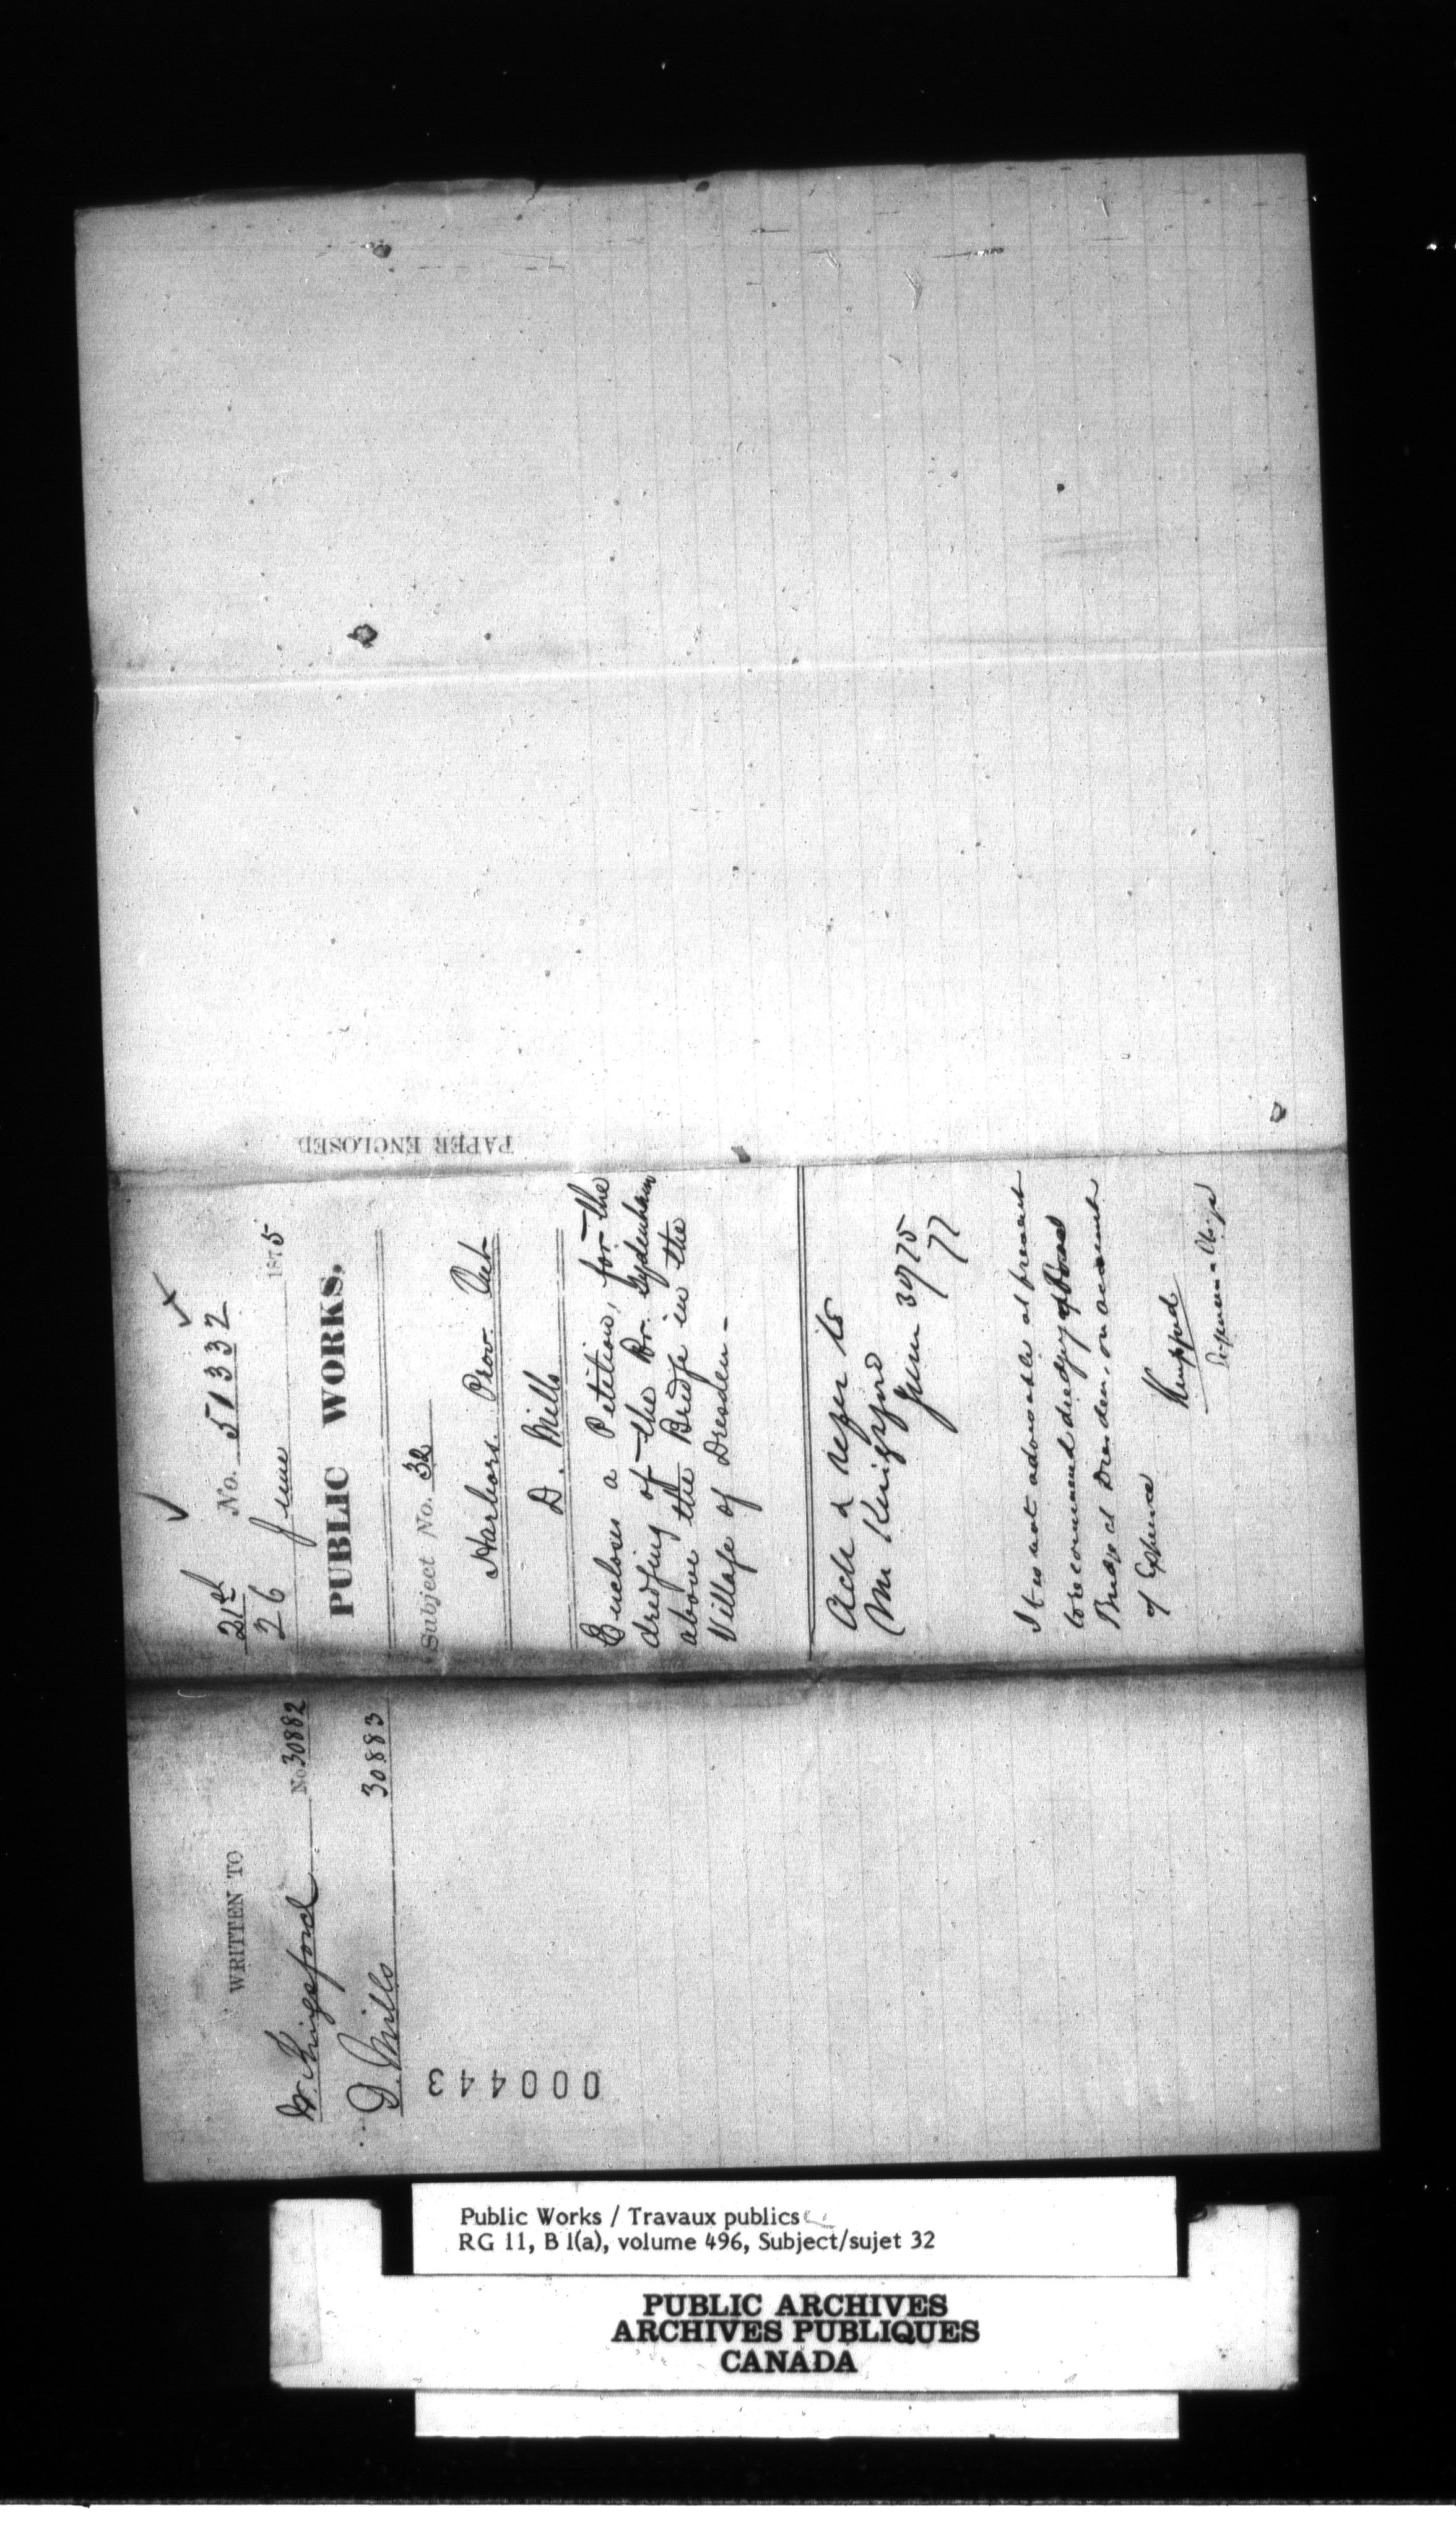 WRITTEN TO
W. Kingsford No. 30882
D. Mills 30883
000443
21st No. 51332
26 June 1875
PUBLIC WORKS.
Subject No. 32
Harbors. Prov. Ont
D. Mills
Encloses a Petition, for the
dredging of the Rr. Sydenham
above the Bridge in the
Village of Dresden -
Ack & refer to
Mr Kingsford
June 30/75
It is not advisable at present
to recommend dredging above
Bridge at Dresden, on account
of Expense
Kingsford
PAPER ENCLOSED
Public Works / Travaux publics
RG 11, B 1(a), volume 496, Subject/sujet 32
PUBLIC ARCHIVES
ARCHIVES PUBLIQUES
CANADA